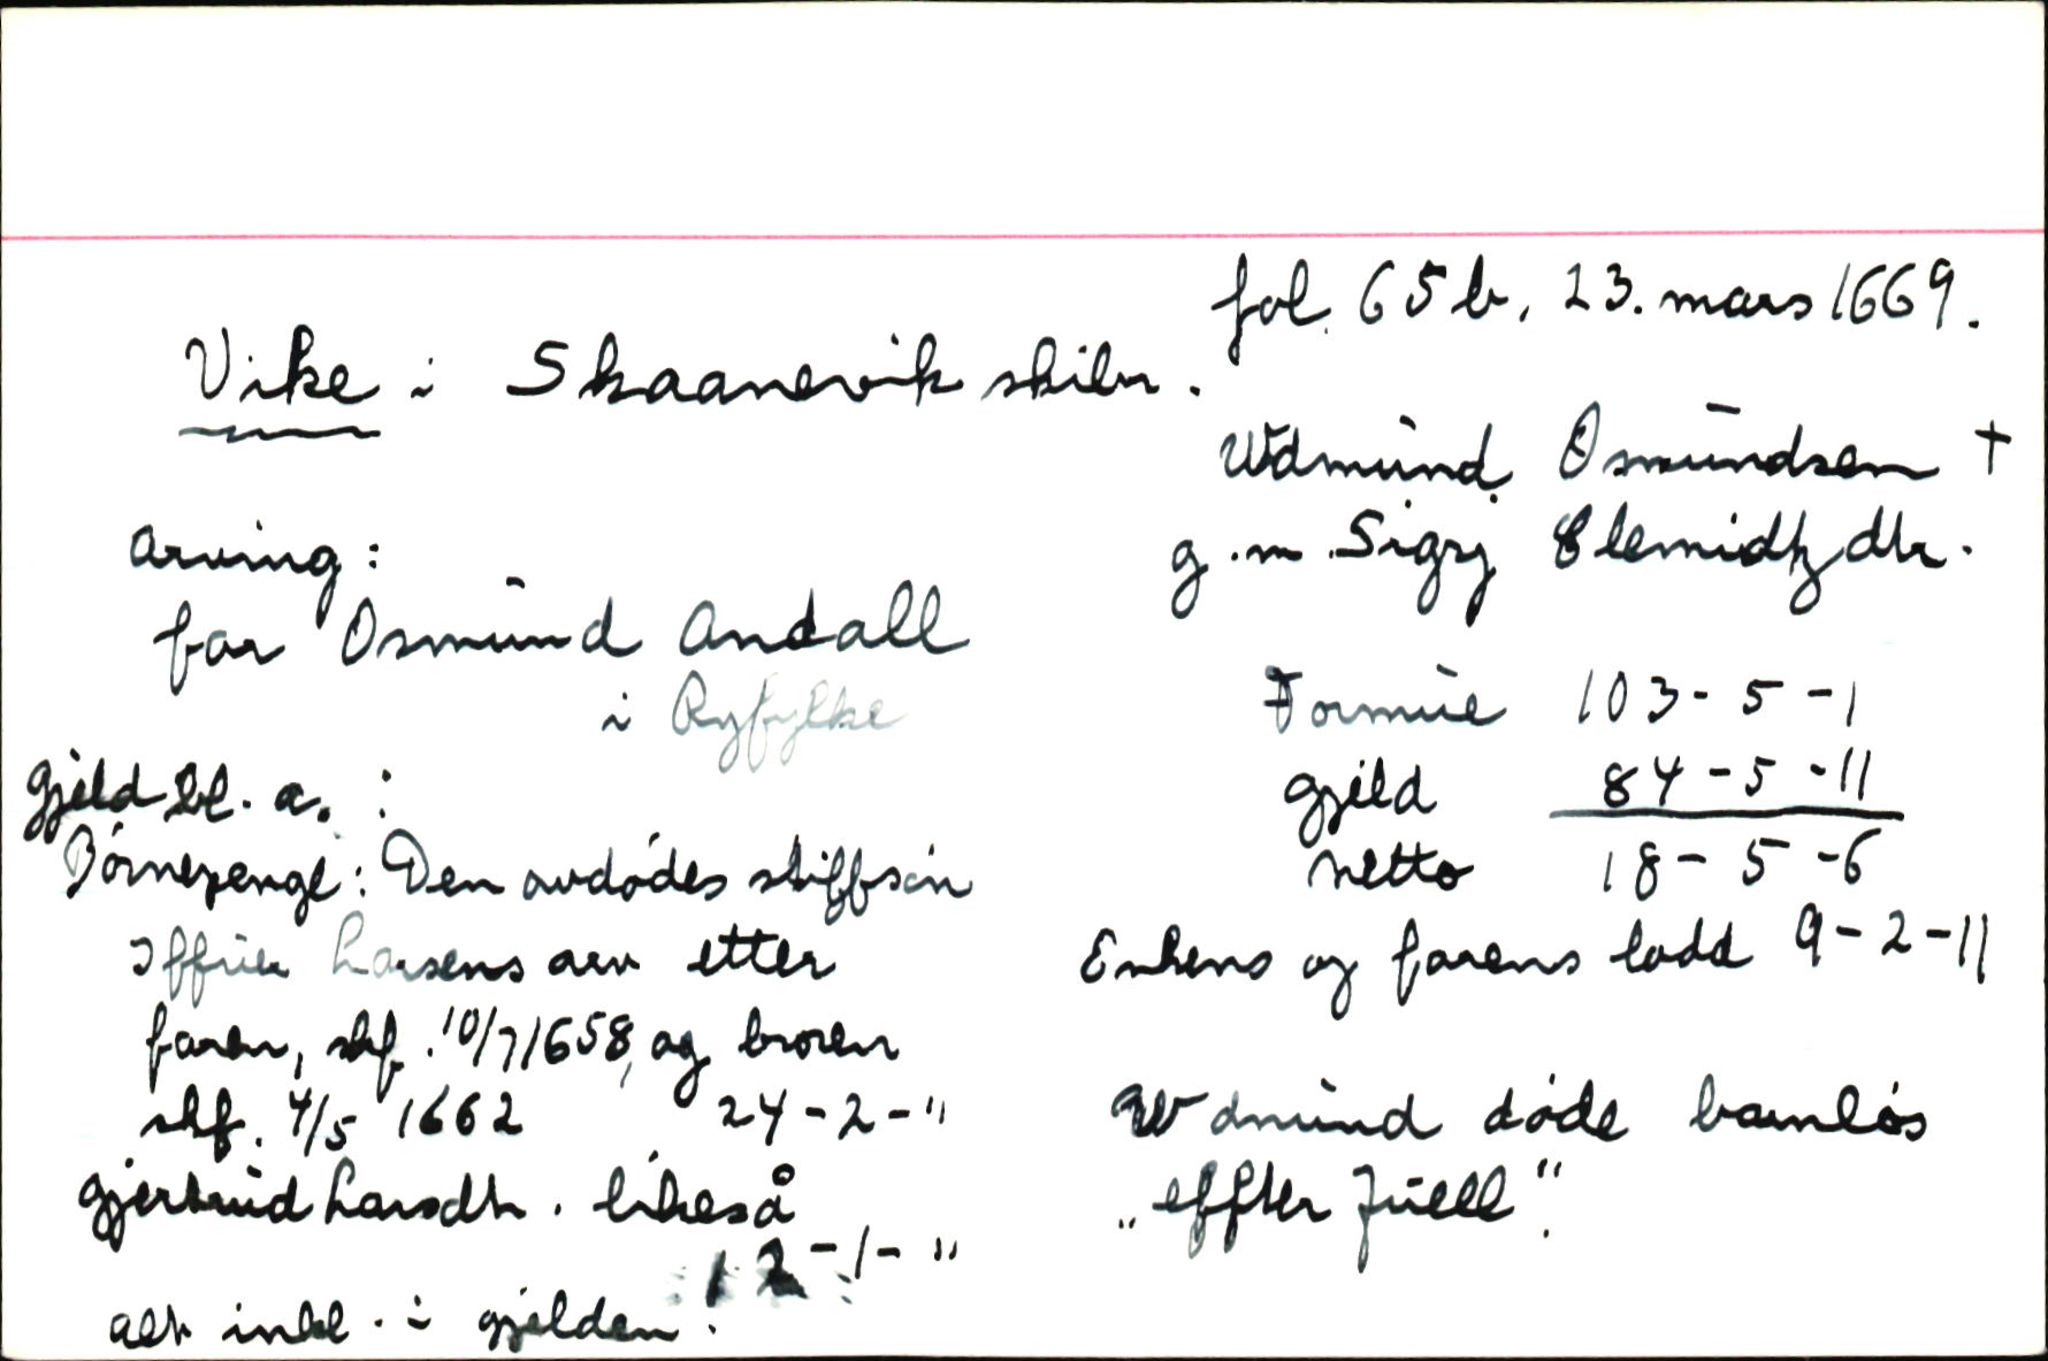 fol. 65b, 23. mars 1669.
Vike i Skaanevik skibr.
Wdmund Osmundsen †
g.m. Sigrj Clemidtz dtr.
Arving:
far Osmund Andall
i Ryfylke
Formue 103-5-1
gjeld 84-5-11
netto 18-5-6
Enkens og farens lodd 9-2-11
Wdmund døde barnløs
„effter Juell".
Gjeld bl. a. :
Børnepenge: Den avdødes stiffsøn
Iffuer Larsens arv etter
faren, skf. 10/7 1658, og broren
skf. 4/5 1662 24-2-"
Gjertrud Larsdtr. likeså
12-1-"
alt inkl. i gjelden.